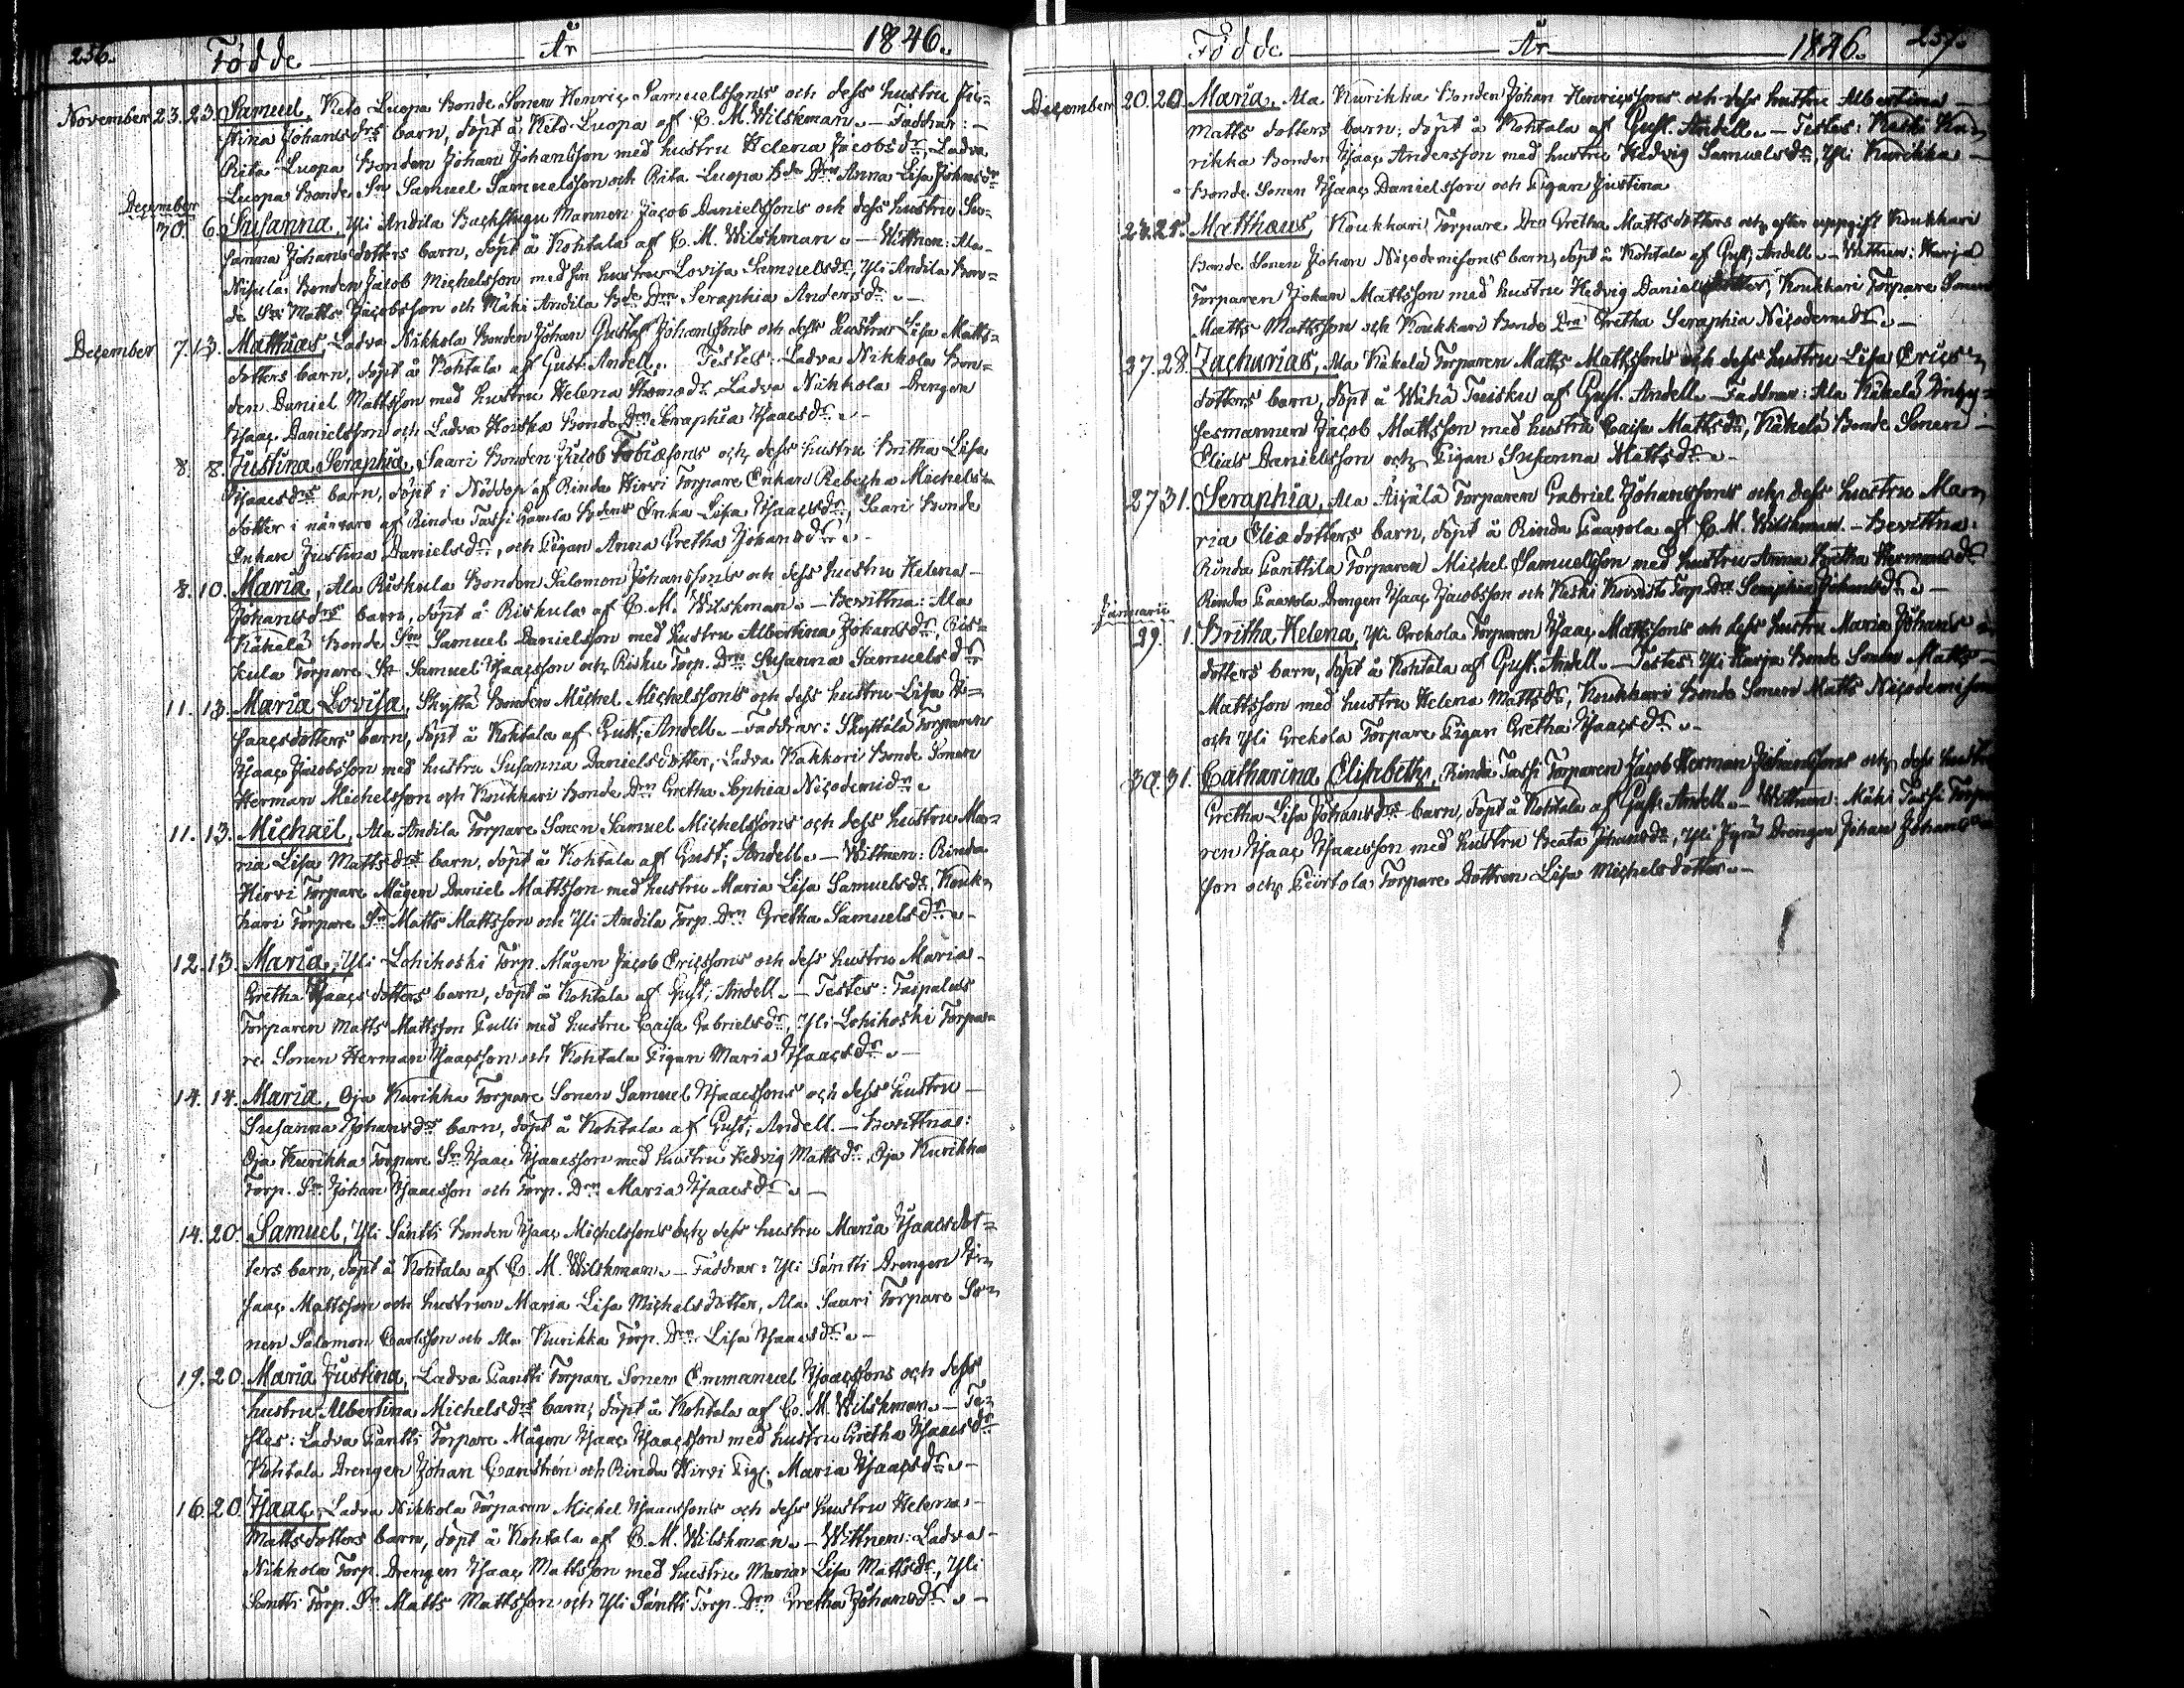 256. Födde År 1846.
November 23. 23. Samuel, Keto Luopa Bonde Sonen Henric Samuelssons och dess hustru Ju=
stina Johansdrs barn, döpt å Keto Luopa af C. M. Wilskman. — Faddrar: —
Rita Luopa Bonden Johan Johansson med hustru Helena Jacobsdr, Ladva
Luopa Bonde Sn Samuel Samuelsson och Rita Luopa Bde Drn Anna Lisa Johansdr
December
30. 6. Susanna, Yli Andila Backstugu Mannen Jacob Danielssons och dess hustru Su=
sanna Johansdotters barn, döpt å Kohtala af C. M. Wilskman. — Wittnen: Ala
Nisula Bonden Jacob Michelsson med sin hustru Lovisa Samuelsdr, Yli Andila Bon=
de Sn Matts Jacobsson och Mäki Andila Bde Drn Seraphia Andersdr. —
December 7. 13. Matthias, Ladva Nikkola Bonden Johan Gustaf Johanssons och dess hustru Lisa Matts=
dotters barn, döpt å Kohtala af Gust. Andell. Testes: Ladva Nikkola Bon=
den Daniel Mattsson med hustru Helena Thomsdr, Ladva Nikkola Drengen
Isaac Danielsson och Ladva Hoiska Bonde Drn Seraphia Isaacsdr. —
8. 8. Justina Seraphia, Saari Bonden Jacob Tobiæsons och dess hustru Britha Lisa
Isaacsdrs barn, döpt i Nöddop af Rinda Hirvi Torpare Enkan Rebecha Michels=
dotter i närvaro af Rinda Tassi Gamla Bdens Enka Lisa Isaacsdr, Saari Bonde
Enkan Justina Danielsdr, och Pigan Anna Gretha Johansdr. —
8. 10. Maria, Ala Riskula Bonden Salomon Johanssons och dess hustru Helena
Johansdrs barn, döpt å Riskula af C. M. Wilskman. — Bevittna: Ala
Käkelä Bonde Sn Samuel Danielsson med hustru Albertina Johansdr, Ris=
kula Torpare Sn Samuel Isaacsson och Risku Torp. Drn Susanna Samuelsdr
11. 13. Maria Lovisa, Skyttä Bonden Michel Michelssons och dess hustru Lisa I=
saacsdotters barn, döpt å Kohtala af Gust. Andell. — Faddrar: Skyttälä Torparen
Isaac Jacobsson med hustru Susanna Danielsdotter, Ladva Kakkori Bonde Sonen
Herman Michelsson och Koukkari Bonde Drn Gretha Sophia Nicodemidr.
11. 13. Michaël, Ala Andila Torpare Sonen Samuel Michelssons och dess hustru Ma=
ria Lisa Mattsdrs barn, döpt å Kohtala af Gust. Andell. — Wittnen: Rinda
Hirvi Torpare Mågen Daniel Mattsson med hustru Maria Lisa Samuelsdr, Kouk=
kari Torpare Sn Matts Mattsson och Yli Andila Torp. Drn Gretha Samuelsdr. —
12. 13. Maria, Yli Lohikoski Torp. Mågen Jacob Ericssons och dess hustru Maria
Gretha Isaacsdotters barn, döpt å Kohtala af Gust. Andell. — Testes: Taipalus
Torparen Matts Mattsson Pulli med hustru Caisa Gabrielsdr, Yli Lohikoski Torpa=
re Sonen Herman Isaacsson och Kohtala Pigan Maria Isaacsdr. —
14. 14. Maria, Oja Kurikka Torpare Sonen Samuel Isaacssons och dess hustru
Susanna Johansdrs barn, döpt å Kohtala af Gust. Andell. — Bevittna:
Oja Kurikka Torpare Sn Isaac Isaacsson med hustru Hedvig Mattsdr, Oja Kurikka
Torp. Sn Johan Isaacsson och Torp. Drn Maria Isaacsdr. —
14. 20. Samuel, Yli Säntti Bonden Isaac Michelssons och dess hustru Maria Isaacsdot=
ters barn, döpt å Kohtala af C. M. Wilskman. — Faddrar: Yli Säntti Drengen I=
saac Mattsson och hustrun Maria Lisa Michelsdotter, Ala Saari Torpare So=
nen Salomon Carlsson och Ala Kurikka Torp. Drn Lisa Isaacsdr. —
19. 20. Maria Justina, Ladva Pantti Torpare Sonen Emmanuel Isaacssons och dess
hustru Albertina Michelsdrs barn, döpt å Kohtala af C. M. Wilskman. — Te=
stes: Ladva Pantti Torpare Mågen Isaac Isaacsson med hustru Gretha Isaacsdr
Kohtala Drengen Johan Castrén och Rinda Hirvi Pig. Maria Isaacsdr. —
16. 20. Isaac, Ladva Nikkola Torparen Michel Isaacssons och dess hustru Helena
Mattsdotters barn, döpt å Kohtala af C. M. Wilskman. — Wittnen: Ladva
Nikkola Torp. Drengen Isaac Mattsson med hustru Maria Lisa Mattsdr, Yli
Säntti Torp. Sn Matts Mattsson och Yli Säntti Torp. Drn Gretha Johansdr. —
Födde År 1846. 257.
December 20. 20. Maria, Ala Kurikka Bonden Johan Henricssons och dess hustru Albertina
Mattsdotters barn, döpt å Kohtala af Gust. Andell. — Testes: Keski Ku=
rikka Bonden Isaac Andersson med hustru Hedvig Samuelsdr, Yli Kurikka
Bonde Sonen Isaac Danielsson och Pigan Justina
23. 25. Matthæus, Koukkari Torpare Drn Gretha Mattsdotters och efter uppgift Koukkari
Bonde Sonen Johan Nicodemisons barn, döpt å Kohtala af Gust. Andell. — Wittnen: Harja
Torparen Johan Mattsson med hustru Hedvig Danielsdotter, Koukkari Torpare Sonen
Matts Mattsson och Koukkari Bonde Drn Gretha Seraphia Nicodemidr. —
27. 28. Zacharias, Ala Käkelä Torparen Matts Mattssons och dess hustru Lisa Erics=
dotters barn, döpt å Wähä Tuisku af Gust. Andell. — Faddrar: Ala Käkelä Inhy=
sesmannen Jacob Mattsson med hustru Caisa Mattsdr, Käkelä Bonde Sonen
Elias Danielsson och Pigan Susanna Mattsdr. —
27 31. Seraphia, Ala Äijälä Torparen Gabriel Johanssons och dess hustru Ma=
ria Eliædotters barn, döpt å Rinda Paavola af C. M. Wilskman. — Bevittna:
Rinda Panttila Torparen Michel Samuelsson med hustru Anna Gretha Hermansdr
Rinda Paavola Drengen Isaac Jacobsson och Keski Koivisto Torp. Drn Seraphia Johansdr. —
Januarii
29. 1. Britha Helena, Yli Grekola Torparen Isaac Mattssons och dess hustru Maria Johans
dotters barn, döpt å Kohtala af Gust. Andell. — Testes: Yli Harja Bonde Sonen Matts
Mattsson med hustru Helena Mattsdr, Koukkari Bonde Sonen Matts Nicodemison
och Yli Grekola Torpare Pigan Gretha Isaacsdr. —
30. 31. Catharina Elisabeth, Rinda Tassi Torparen Jacob Herman Johanssons och dess hustru
Gretha Lisa Johansdrs barn, döpt å Kohtala af Gust. Andell. — Wittnen: Mäki Tassi Torpa
ren Isaac Isaacsson med hustru Beata Johansdr, Yli Jyrä Drengen Johan Johans
son och Piirtola Torpare Dottren Lisa Michelsdotter. —